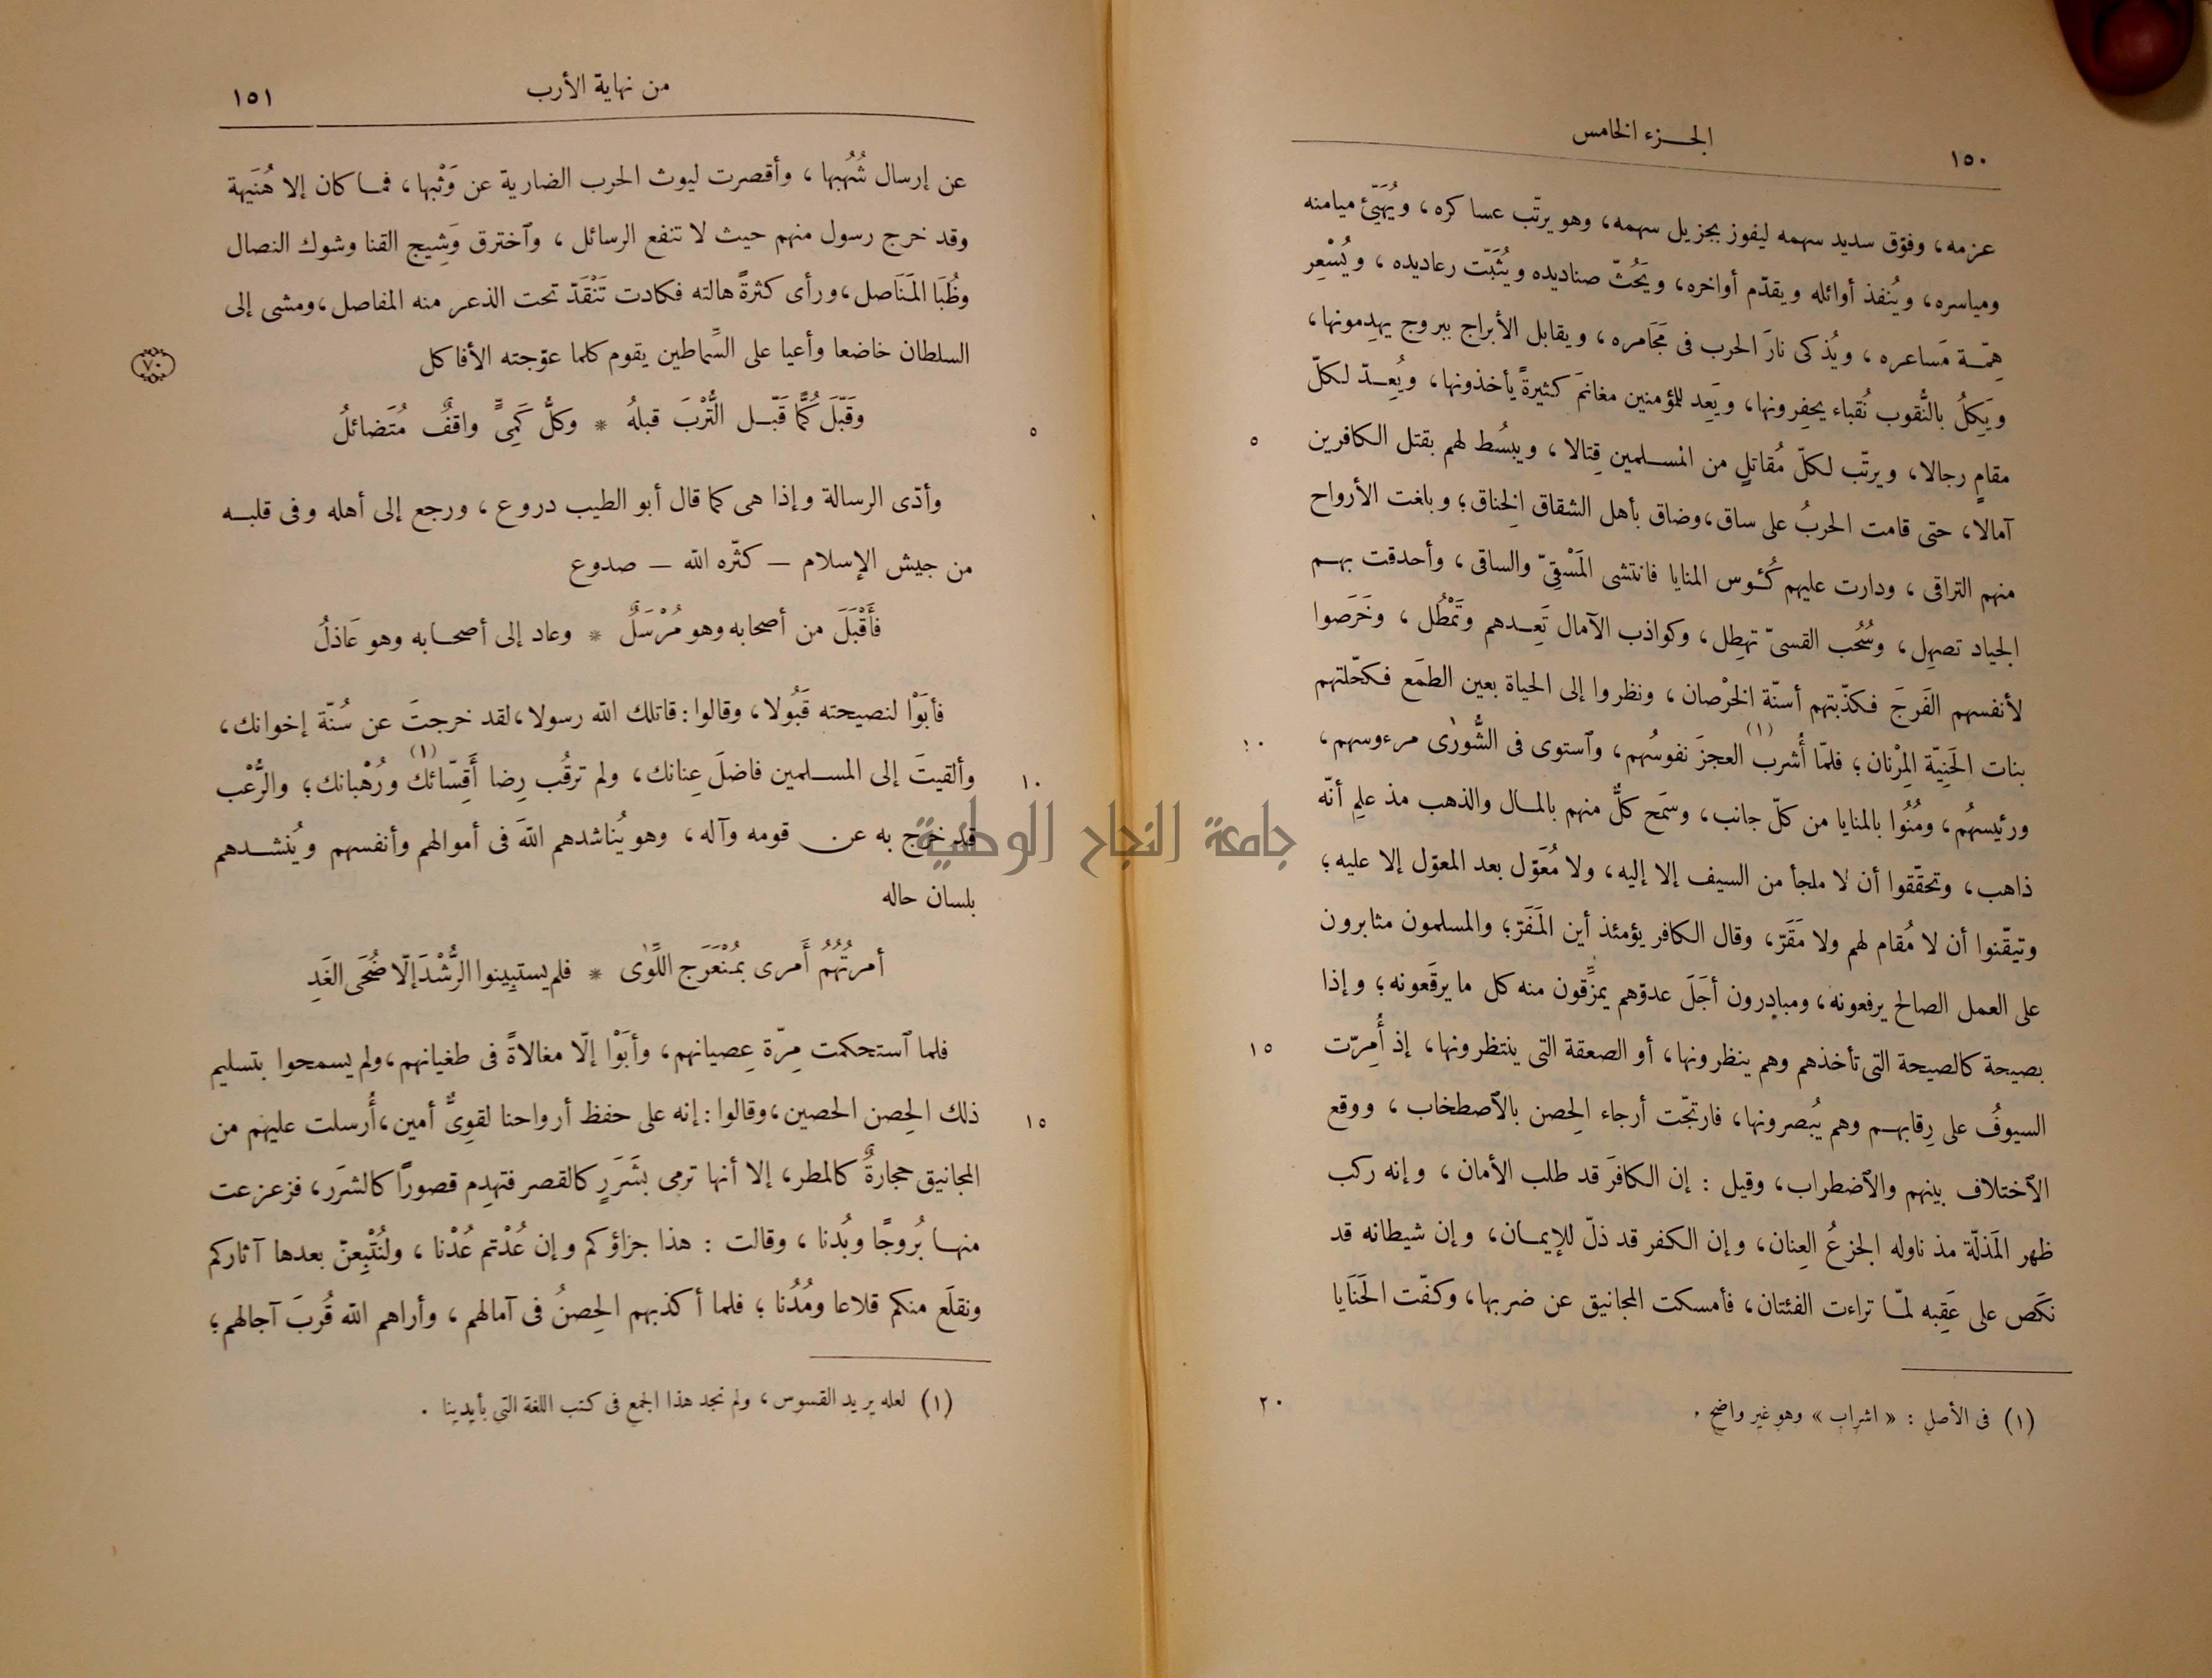 ١٥٠
الجزء الخامس
عزمه، وفوّق سديد سهمه ليفوز بجزيل سهمه، وهو يرتّب عساكره، ويُهَيّئ ميامنه
ومياسره، ويُنفذ أوائله ويقدّم أواخره، ويَحُثّ صناديده ويُثَبّت رعاديده، ويُسْعِر
هِمّة مَساعره، ويُذكى نارَ الحرب فى مَجَامره، ويقابل الأبراج ببروج يهدِمونها،
ويَكِلُ بالنُّقوب نُقباء يحفِرونها، ويَعِد للمؤمنين مغانمَ كثيرةً يأخذونها، ويُعِدّ لكلّ
مقامٍ رجالا، ويرتّب لكلّ مُقاتلٍ من المسلمين قِتالا، ويبسُط لهم بقتل الكافرين
٥
آمالا، حتى قامت الحربُ على ساق، وضاق بأهل الشقاق الخِناق؛ وبلغت الأرواح
منهم التراقى، ودارت عليهم كُئوس المنايا فانتشى المَسْقِىّ والساقى، وأحدقت بهم
الجياد تصهِل، وسُحُب القسىّ تهطِل، وكواذب الآمال تَعِدهم وتَمْطُل، وخَرَصوا
لأنفسهم الفَرجَ فكذّبتهم أسنّة الخرْصان، ونظروا إلى الحياة بعين الطمَع فكحّلتهم
بنات الحَنِيّة المِرْنان؛ فلمّا أُشرب (١) العجزَ نفوسُهم، وٱستوى فى الشُّورٰى مرءوسهم،
١٠
ورئيسهُم، ومُنُوا بالمنايا من كلّ جانب، وسَمَح كلٌّ منهم بالمال والذهب مذ علِم أنّه
ذاهب، وتحقّقوا أن لا ملجأ من السيف إلا إليه، ولا مُعَوّل بعد المعوّل إلا عليه؛
وتيقّنوا أن لا مُقام لهم ولا مَقَرّ، وقال الكافر يؤمئذ أين المَفَرّ؛ والمسلمون مثابرون
على العمل الصالح يرفعونه، ومبادرون أجَلَ عدوّهم يمزِّقون منه كل ما يرقَعونه؛ وإذا
بصيحة كالصيحة التى تأخذهم وهم ينظرونها، أو الصعقة التى ينتظرونها، إذ أُمِرّت
١٥
السيوفُ على رِقابهم وهم يُبصرونها، فارتجّت أرجاء الحِصن بالٱصطخاب، ووقع
الٱختلاف بينهم والٱضطراب، وقيل : إن الكافرَ قد طلب الأمان، وإنه ركب
ظهر المَذلّة مذ ناوله الجزعُ العِنان، وإن الكفر قد ذلّ للإيمان، وإن شيطانه قد
نكَص على عَقِبه لمّا تراءت الفئتان، فأمسكت المجانيق عن ضربها، وكفّت الحَنَايا
٢٠
(١) فى الأصل : « اشراب » وهو غير واضح .
من نهاية الأرب
١٥١
عن إرسال شُهُبها، وأقصرت ليوث الحرب الضارية عن وَثْبها، فما كان إلا هُنَيهة
وقد خرج رسول منهم حيث لا تنفع الرسائل، وٱخترق وَشِيج القنا وشوك النصال
وظُبَا المَنَاصل، ورأى كثرةً هالته فكادت تَنْقَدّ تحت الذعر منه المفاصل، ومشى إلى
السلطان خاضعا وأعيا على السِّماطين يقوم كلما عوّجته الأفاكل
٧٠
وقَبّلَ كُمًّا قَبّل التُّرْبَ قبلهُ * وكلُّ كَمِىٍّ واقفٌ مُتَضائلُ
٥
وأدّى الرسالة وإذا هى كما قال أبو الطيب دروع، ورجع إلى أهله وفى قلبه
من جيش الإسلام – كثّره الله – صدوع
فأَقْبَلَ من أصحابه وهو مُرْسَلٌ * وعاد إلى أصحابه وهو عَاذلُ
فأبَوْا لنصيحته قَبُولا، وقالوا: قاتلك الله رسولا، لقد خرجتَ عن سُنّة إخوانك،
وألقيتَ إلى المسلمين فاضلَ عِنانك، ولم ترقُب رِضا أَقِسّائك (١) ورُهْبانك؛ والرُّعْب
١٠
قد خرج به عن قومه وآله، وهو يُناشدهم اللهَ فى أموالهم وأنفسهم ويُنشدهم
بلسان حاله
أمرتُهُمُ أَمرى بمُنْعَرَج اللِّوٰى * فلم يستبِينوا الرُّشْدَ إلّا ضُحَى الغَدِ
فلما ٱستحكمت مِرّة عِصيانهم، وأبَوْا إلّا مغالاةً فى طغيانهم، ولم يسمحوا بتسليم
ذلك الحِصن الحصين، وقالوا: إنه على حفظ أرواحنا لقوِىٌّ أمين، أُرسلت عليهم من
١٥
المجانيق حجارةٌ كالمطر، إلا أنها ترمى بشَرَرٍ كالقصر فتهدِم قصورًا كالشَرر، فزعزعت
منها بُروجًا وبُدنا، وقالت : هذا جزاؤكم وإن عُدْتم عُدْنا، ولنُتْبِعنّ بعدها آثاركم
ونقلَع منكم قلاعا ومُدُنا؛ فلما أكذبهم الحِصنُ فى آمالهم، وأراهم الله قُربَ آجالهم؛
(١) لعله يريد القسوس، ولم نجد هذا الجمع فى كتب اللغة التى بأيدينا .
جامعة النجاح الوطنية